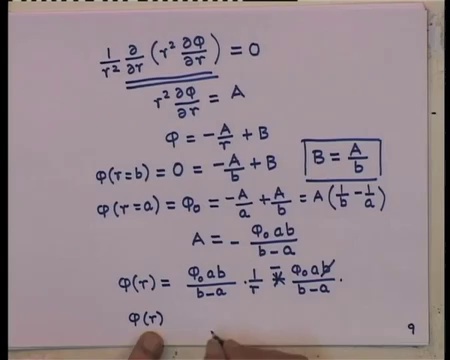 1/r² ∂/∂r (r² ∂φ/∂r) = 0
r² ∂φ/∂r = A
φ = -A/r + B
φ(r=b) = 0 = -A/b + B    B = A/b
φ(r=a) = φ₀ = -A/a + A/b = A(1/b - 1/a)
A = - φ₀ab/b-a
φ(r) = φ₀ab/b-a · 1/r - φ₀a/b-a.
φ(r)
9